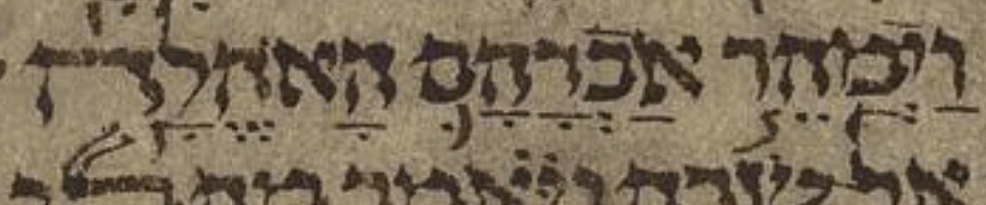 וַיְמַהֵ֧ר אַבְרָהָ֛ם הָאֹ֖הֱלָה
אל שרה ויאמר מהרי